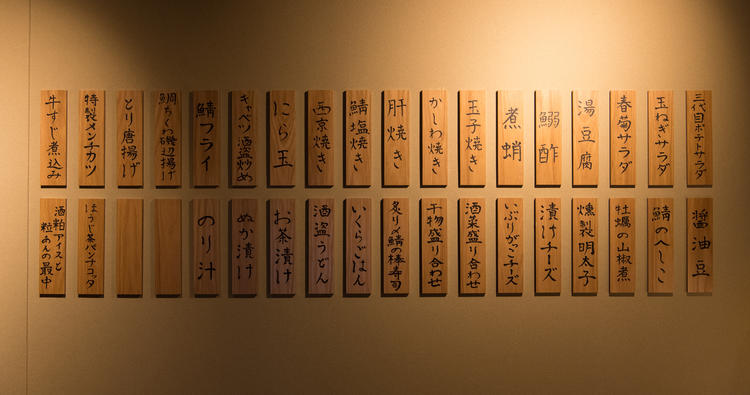 三代目ポテトサラダ
玉ねぎサラダ
春菊サラダ
湯豆腐
鰯酢
煮蛸
玉子焼き
かしわ焼き
肝焼き
鯖塩焼き
西京焼き
にら玉
キャベツ酒盗炒め
鯖フライ
鯛ちくわ磯辺揚げ
とり唐揚げ
特製メンチカツ
牛すじ煮込み
醤油豆
鯖のへしこ
牡蠣の山椒煮
燻製明太子
漬けチーズ
いぶりがっこチーズ
酒菜盛り合わせ
干物盛り合わせ
炙り〆鯖の棒寿司
いくらごはん
酒盗うどん
お茶漬け
ぬか漬け
のり汁
ほうじ茶パンナコッタ
酒粕アイスと
粒あんの最中